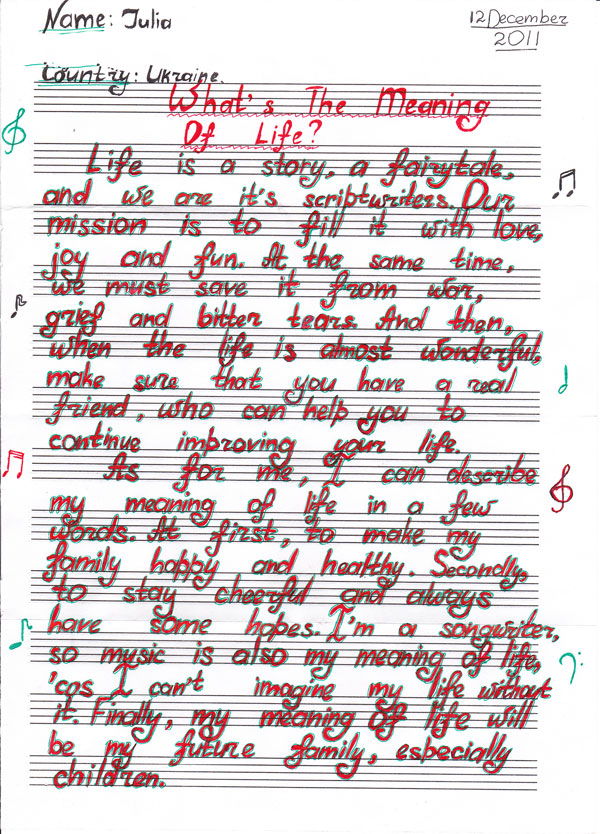 Name: Julia
12 December
2011
Country: Ukraine.
What's The Meaning
Of Life?
Life is a story, a fairytale,
and we are it's scriptwriters. Our
mission is to fill it with love,
joy and fun. At the same time,
we must save it from war,
grief and bitter tears. And then,
when the life is almost wonderful,
make sure that you have a real
friend, who can help you to
continue improving your life.
As for me, I can describe
my meaning of life in a few
words. At first, to make my
family happy and healthy. Secondly,
to stay cheerful and always
have some hopes. I'm a songwriter,
so music is also my meaning of life,
'cos I can't imagine my life without
it. Finally, my meaning Of life will
be my future family, especially
children.